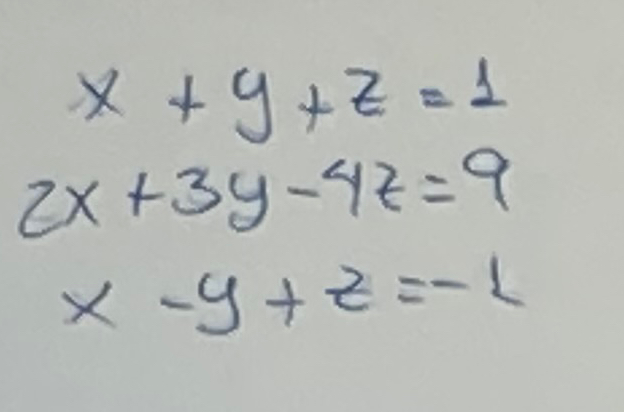 x + y + z = 1
2x + 3y - 4z = 9
x - y + z = -1